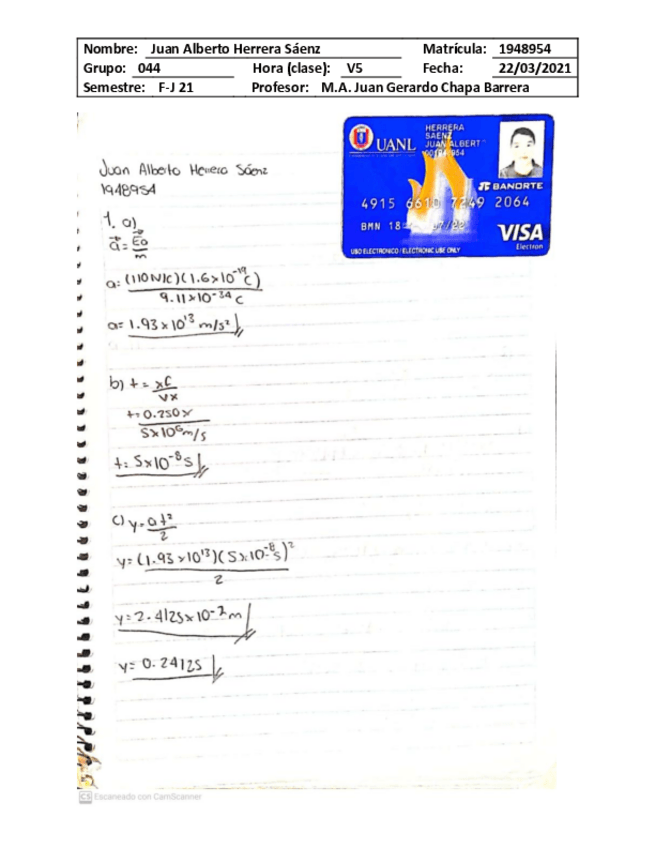 Nombre: Juan Alberto Herrera Sáenz Matrícula: 1948954
Grupo: 044 Hora (clase): V5 Fecha: 22/03/2021
Semestre: F-J 21 Profesor: M.A. Juan Gerardo Chapa Barrera
UANL
HERRERA
SAENZ
JUAN ALBERT
BANORTE
VISA
Electron
USO ELECTRONICO / ELECTRONIC USE ONLY
Juan Alberto Herrera Sáenz
1948954
1. a)
a = Eq
m
a: (110 N/C)(1.6x10⁻¹⁹C)
9.11x10⁻³⁴ C
a= 1.93x10¹³ m/s²
b) t = xf
vx
t= 0.250
5x10⁶m/s
t= 5x10⁻⁸s
c) y= at²
2
y= (1.93x10¹³)(5x10⁻⁸s)²
2
y= 2.4125x10⁻²m
y= 0.24125
CS Escaneado con CamScanner